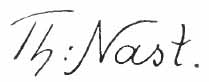 Th: Nast.